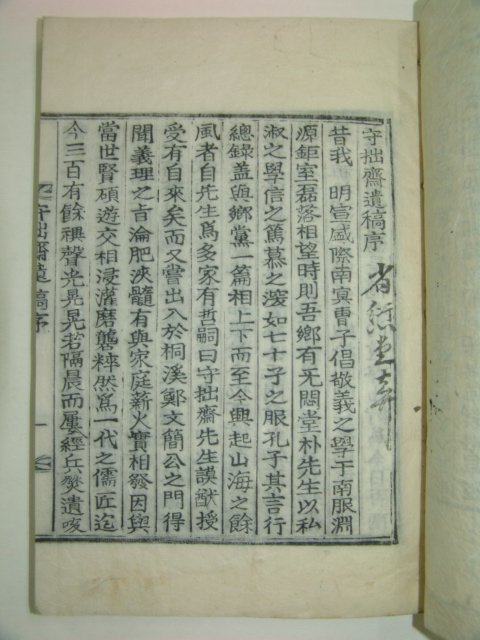 守拙齋遺稿序
昔我 明宣盛際南冥曺子倡敬義之學于南服淵
源鉅室磊落相望時則吾鄉有无悶堂朴先生以私
淑之學信之篤慕之深如七十子之服孔子其言行
總錄盖與鄉黨一篇相上下而至今興起山海之餘
風者自先生爲多家有哲嗣曰守拙齋先生謨猷授
受有自來矣而又嘗出入於桐溪鄭文簡公之門得
聞義理之旨淪肥浹髓有與家庭薪火實相發因與
當世賢碩遊交相浸灌磨礱粹然爲一代之儒匠迄
今三百有餘禩聲光晃晃若隔晨而屢經兵燹遺唆
守拙齋遺稿序